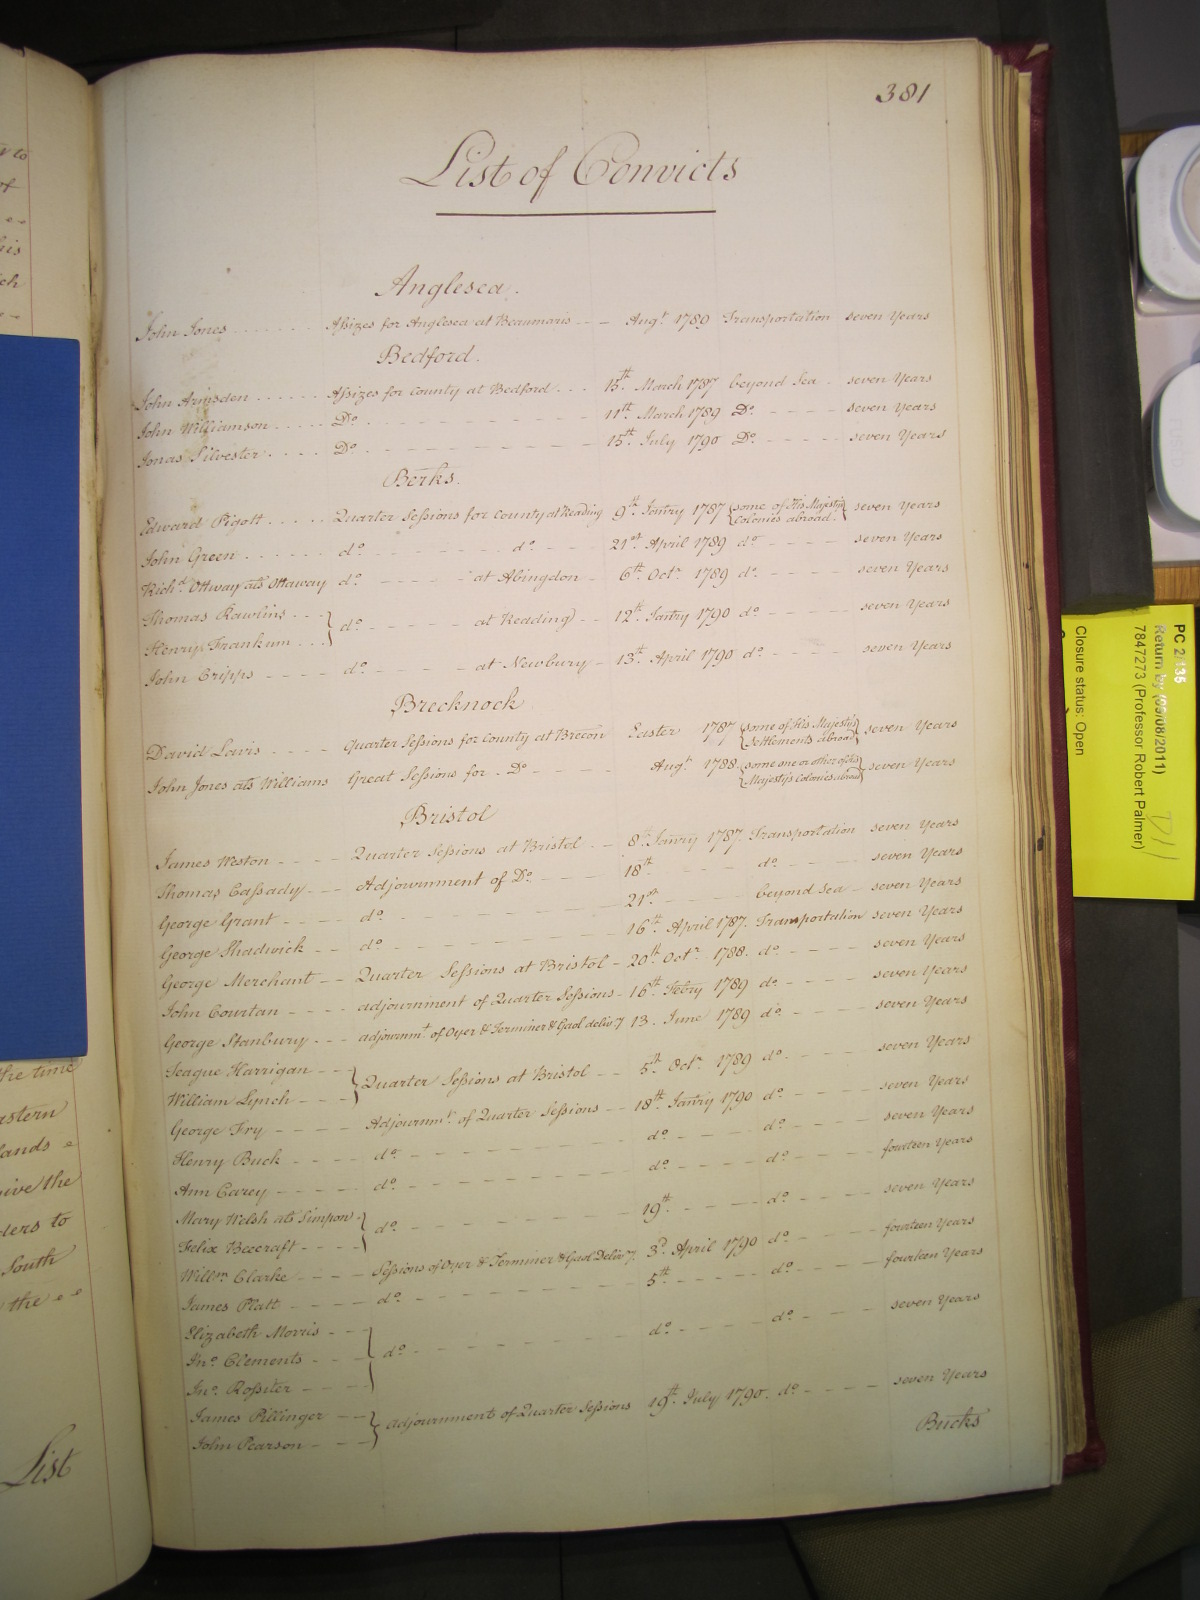 381
List of Convicts
Anglesea.
John Jones Assizes for Anglesea at Beaumaris Augt. 1789 Transportation seven Years
Bedford.
John Armsden Assizes for County at Bedford 15th. March 1787 beyond Sea seven Years
John Williamson Do. 11th. March 1789 Do. seven Years
Jonas Silvester Do. 15th. July 1790 Do. seven Years
Berks.
Edward Pigott Quarter Sessions for County at Reading 9th. Janry 1787 {some of His Majestys Colonies abroad.} seven Years
John Green do. do. 21st April 1789 do. seven Years
Richd. Ottway als Ottaway do. at Abingdon 6th. Octr. 1789 do. seven Years
Thomas Rawlins
Henry Frankum } do. at Reading 12th. Janry 1790 do. seven Years
John Cripps do. at Newbury 13th. April 1790 do. seven Years
Brecknock
David Lavis Quarter Sessions for County at Brecon Easter 1787 {some of His Majestys Settlements abroad} seven Years
John Jones als Williams Great Sessions for Do. Augt. 1788 {some one or other of His Majestys Colonies abroad} seven Years
Bristol
James Weston Quarter Sessions at Bristol 8th. Janry 1787. Transportation seven Years
Thomas Cassady Adjournment of Do. 18th. do. seven Years
George Grant do. 21st. beyond Sea seven Years
George Shadwick do. 16th. April 1787. Transportation seven Years
George Merchant Quarter Sessions at Bristol 20th. Octr. 1788. do. seven Years
John Courtan adjournment of Quarter Sessions 16th. Febry 1789 do. seven Years
George Stanbury adjournmt. of Oyer & Terminer & Gaol delivy 13. June 1789 do. seven Years
Teague Harrigan
William Lynch } Quarter Sessions at Bristol 5th. Octr. 1789 do. seven Years
George Fry Adjournmt. of Quarter Sessions 18th. Janry 1790 do. seven Years
Henry Buck do. do. do. seven Years
Ann Carey do. do. do. fourteen Years
Mary Welsh als Simpon
Felix Beecraft } do. 19th. do. seven Years
Willm. Clarke Sessions of Oyer & Terminer & Gaol Delivy. 3d. April 1790 do. fourteen Years
James Platt do. 5th. do. fourteen Years
Elizabeth Morris
Jno. Clements
Jno. Rossiter } do. do. do. seven Years
James Pillinger
John Pearson } adjournment of Quarter Sessions 19th. July 1790. do. seven Years
Bucks
to
of
his
the time
lands
give the
ders to
South
the
List
PC 2/135
Return by (09/08/2011)
7847273 (Professor Robert Palmer)
Closure status: Open